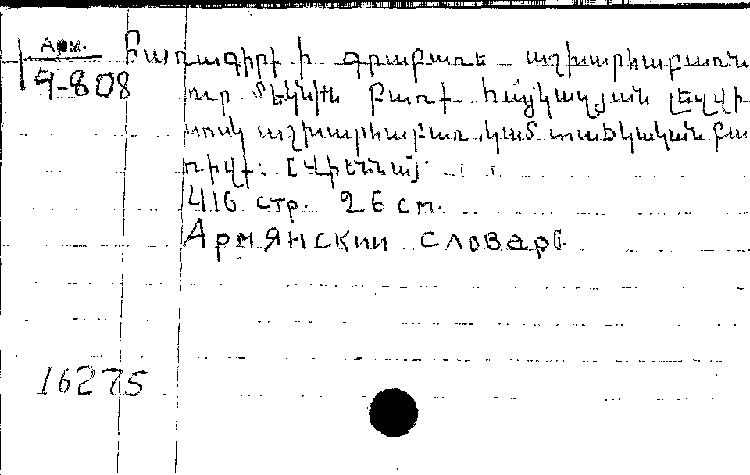 Арм.
9-808
Բառագիրք ի գրաբառե աշխարհաբառն
ուր մեկնին բառք հայկական լեզվի
սոսկ աշխարհաբառ կամ տաճկական բա
ռիվք: [Վիեննա]
416 стр. 26 см.
Армянский словарь
16275